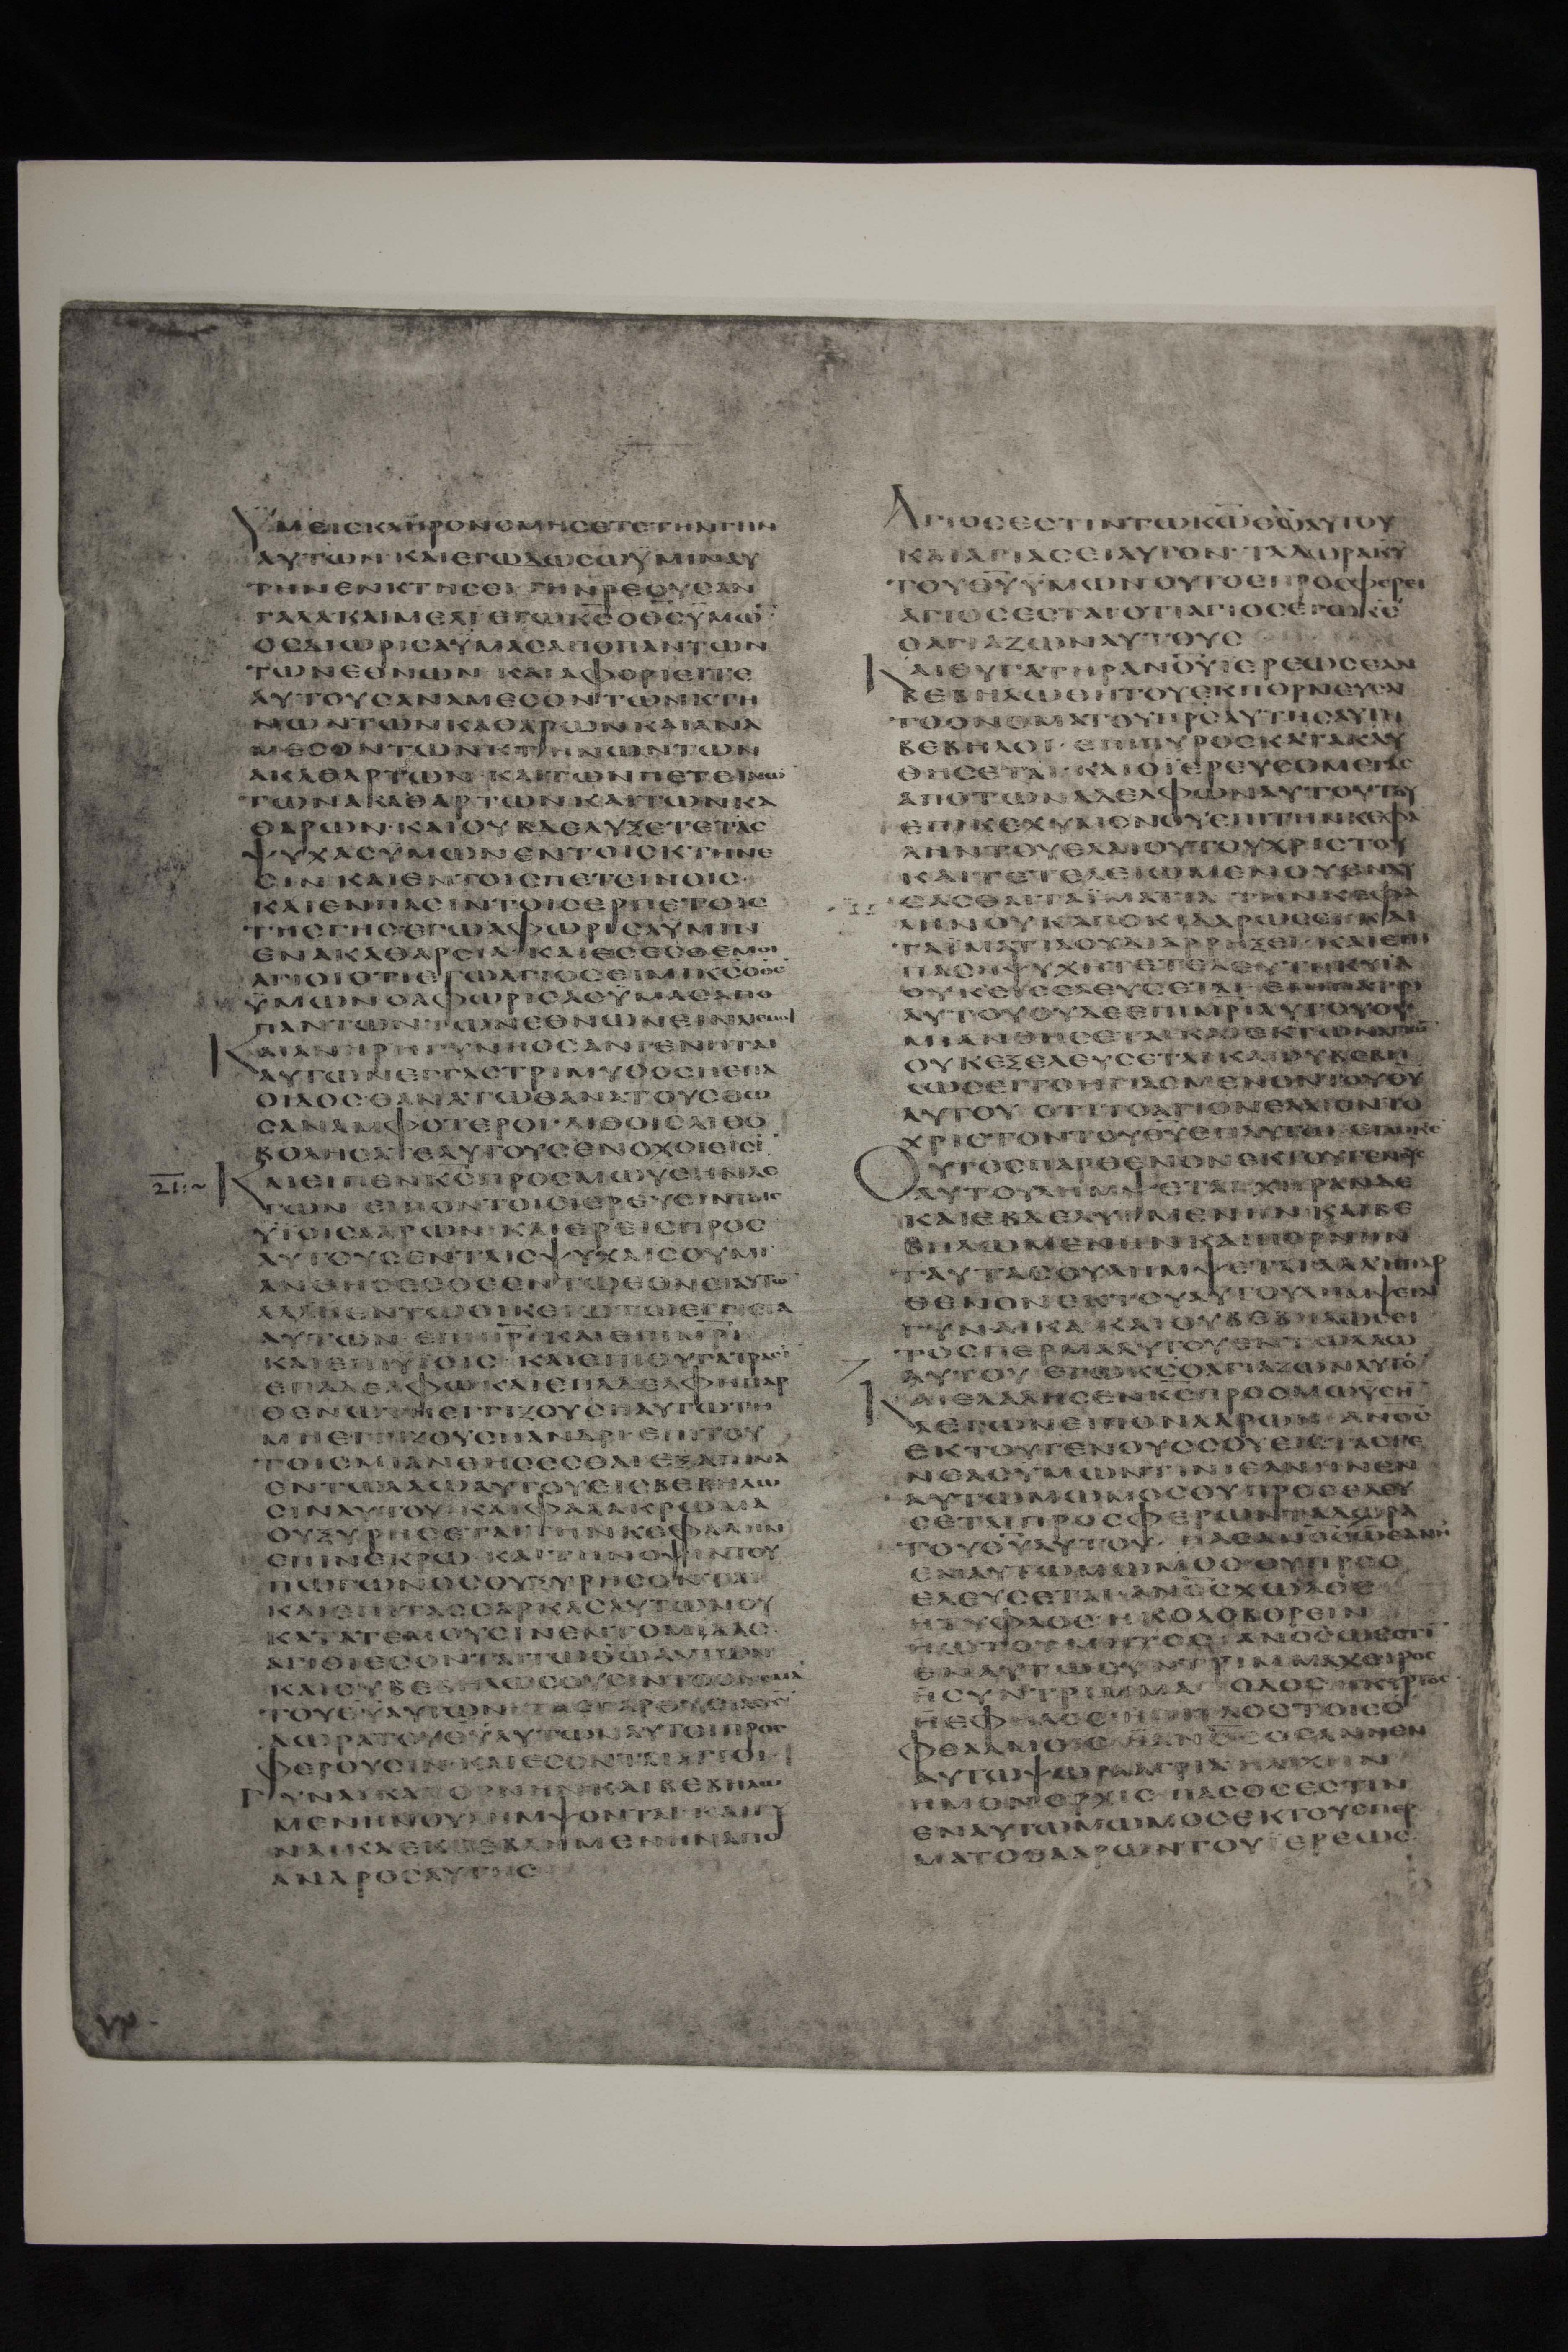 ΥΜΕΙΣΚΛΗΡΟΝΟΜΗΣΕΤΕΤΗΝΓΗΝ
ΑΥΤΩΝ·ΚΑΙΕΓΩΔΩΣΩΫΜΙΝΑΥ
ΤΗΝΕΝΚΤΗΣΕΙ ΓΗΝΡΕΟΥΣΑΝ
ΓΑΛΑΚΑΙΜΕΛΙ ΕΓΩΚ̅Σ̅Ο̅Θ̅Σ̅ΫΜΩ̅
ΟΣΔΙΩΡΙΣΑΫΜΑΣΑΠΟΠΑΝΤΩΝ
ΤΩΝΕΘΝΩΝ ΚΑΙΑΦΟΡΙΕΙΤΕ
ΑΥΤΟΥΣΑΝΑΜΕΣΟΝΤΩΝΚΤΗ
ΝΩΝΤΩΝΚΑΘΑΡΩΝΚΑΙΑΝΑ
ΜΕΣΟΝΤΩΝΚΤΗΝΩΝΤΩΝ
ΑΚΑΘΑΡΤΩΝ ΚΑΙΤΩΝΠΕΤΕΙΝΩ̅
ΤΩΝΑΚΑΘΑΡΤΩΝ·ΚΑΙΤΩΝΚΑ
ΘΑΡΩΝ·ΚΑΙΟΥΒΔΕΛΥΞΕΤΕΤΑΣ
ΨΥΧΑΣΫΜΩΝΕΝΤΟΙΣΚΤΗΝΕ
ΣΙΝ ΚΑΙΕΝΤΟΙΣΠΕΤΕΙΝΟΙΣ·
ΚΑΙΕΝΠΑΣΙΝΤΟΙΣΕΡΠΕΤΟΙΣ
ΤΗΣΓΗΣΕΓΩΑΦΩΡΙΣΑΫΜΙΝ
ΕΝΑΚΑΘΑΡΣΙΑ·ΚΑΙΕΣΕΣΘΕΜΟΙ
ΑΓΙΟΙΟΤΙΕΓΩΑΓΙΟΣΕΙΜΙΚ̅Σ̅Ο̅Θ̅Σ̅
ΫΜΩΝΟΑΦΩΡΙΣΑΣΫΜΑΣΑΠΟ
ΠΑΝΤΩΝΤΩΝΕΘΝΩΝΕΙΝΑΙΕΜΟΙ
ΚΑΙΑΝΗΡΗΓΥΝΗΟΣΑΝΓΕΝΗΤΑΙ
ΑΥΤΩΝΕΓΓΑΣΤΡΙΜΥΘΟΣΗΕΠΑ
ΟΙΔΟΣΘΑΝΑΤΩΘΑΝΑΤΟΥΣΘΩ
ΣΑΝΑΜΦΟΤΕΡΟΙ·ΛΙΘΟΙΣΛΙΘΟ
ΒΟΛΗΣΑΤΕΑΥΤΟΥΣΕΝΟΧΟΙΕΙΣΙ̅
21:~
ΚΑΙΕΙΠΕΝΚ̅Σ̅ΠΡΟΣΜΩΫΣΗΝΛΕ
ΓΩΝ ΕΙΠΟΝΤΟΙΣΙΕΡΕΥΣΙΝΤΟΙΣ
ΫΙΟΙΣΑΑΡΩΝ·ΚΑΙΕΡΕΙΣΠΡΟΣ
ΑΥΤΟΥΣΕΝΤΑΙΣΨΥΧΑΙΣΟΥΜΙ
ΑΝΘΗΣΕΣΘΕΕΝΤΩΕΘΝΕΙΑΥΤΩ̅
ΑΛΛΗΕΝΤΩΟΙΚΕΙΩΤΩΕΓΓΙΣΤΑ
ΑΥΤΩΝ ΕΠΙΠ̅Ρ̅Ι̅ΚΑΙΕΠΙΜ̅Ρ̅Ι̅
ΚΑΙΕΠΙΫΙΟΙΣ ΚΑΙΕΠΙΘΥΓΑΤΡΑΣΙ
ΕΠΑΔΕΛΦΩΚΑΙΕΠΑΔΕΛΦΗΠΑΡ
ΘΕΝΩΤΗΕΓΓΙΖΟΥΣΗΑΥΤΩΤΗ
ΜΗΕΓΓΙΖΟΥΣΗΑΝΔΡΙ·ΕΠΙΤΟΥ
ΤΟΙΣΜΙΑΝΘΗΣΕΣΘΑΙΕΞΑΠΙΝΑ
ΕΝΤΩΛΑΩΑΥΤΟΥΕΙΣΒΕΒΗΛΩ
ΣΙΝΑΥΤΟΥ·ΚΑΙΦΑΛΑΚΡΩΜΑ
ΟΥΞΥΡΗΣΕΤΑΙΤΗΝΚΕΦΑΛΗΝ
ΕΠΙΝΕΚΡΩ·ΚΑΙΤΗΝΟΨΙΝΤΟΥ
ΠΩΓΩΝΟΣΟΥΞΥΡΗΣΟΝΤΑΙ
ΚΑΙΕΠΙΤΑΣΣΑΡΚΑΣΑΥΤΩΝΟΥ
ΚΑΤΑΤΕΜΟΥΣΙΝΕΝΤΟΜΙΔΑΣ
ΑΓΙΟΙΕΣΟΝΤΑΙΤΩΘ̅Ω̅ΑΥΤΩΝ
ΚΑΙΟΥΒΕΒΗΛΩΣΟΥΣΙΝΤΟΟΝΟΜΑ
ΤΟΥΘ̅Υ̅ΑΥΤΩΝ
ΔΩΡΑΤΟΥΘ̅Υ̅ΑΥΤΩΝΑΥΤΟΙΠΡΟΣ
ΦΕΡΟΥΣΙΝ·ΚΑΙΕΣΟΝΤΑΙΑΓΙΟΙ·
ΓΥΝΑΙΚΑΠΟΡΝΗΝΚΑΙΒΕΒΗΛΩ
ΜΕΝΗΝΟΥΛΗΜΨΟΝΤΑΙ·ΚΑΙΓΥ
ΝΑΙΚΑΕΚΒΕΒΛΗΜΕΝΗΝΑΠΟ
ΑΝΔΡΟΣΑΥΤΗΣ
ΑΓΙΟΣΕΣΤΙΝΤΩΚ̅Ω̅Θ̅Ω̅ΑΥΤΟΥ
ΚΑΙΑΓΙΑΣΕΙΑΥΤΟΝ·ΤΑΔΩΡΑΚ̅Υ̅
ΤΟΥΘ̅Υ̅ΫΜΩΝΟΥΤΟΣΠΡΟΣΦΕΡΕΙ
ΑΓΙΟΣΕΣΤΑΙΟΤΙΑΓΙΟΣΕΓΩΚ̅Σ̅
ΟΑΓΙΑΖΩΝΑΥΤΟΥΣ
ΚΑΙΘΥΓΑΤΗΡΑΝ̅Ο̅Υ̅ΪΕΡΕΩΣΕΑΝ
ΒΕΒΗΛΩΘΗΤΟΥΕΚΠΟΡΝΕΥΣΑΙ
ΤΟΟΝΟΜΑΤΟΥΠ̅Ρ̅Σ̅ΑΥΤΗΣΑΥΤΗ
ΒΕΒΗΛΟΙ·ΕΠΙΠΥΡΟΣΚΑΤΑΚΑΥ
ΘΗΣΕΤΑΙ·ΚΑΙΟΪΕΡΕΥΣΟΜΕΓΑΣ
ΑΠΟΤΩΝΑΔΕΛΦΩΝΑΥΤΟΥΤΟΥ
ΕΠΙΚΕΧΥΜΕΝΟΥΕΠΙΤΗΝΚΕΦΑ
ΛΗΝΤΟΥΕΛΑΙΟΥΤΟΥΧΡΙΣΤΟΥ
ΚΑΙΤΕΤΕΛΕΙΩΜΕΝΟΥΕΝΔΥ
ΣΑΣΘΑΙΤΑΪΜΑΤΙΑ ΤΗΝΚΕΦΑ
ΛΗΝΟΥΚΑΠΟΚΙΔΑΡΩΣΕΙ·ΚΑΙ
ΤΑΪΜΑΤΙΑΟΥΔΙΑΡΡΗΞΕΙ·ΚΑΙΕΠΙ
ΠΑΣΗΨΥΧΗΤΕΤΕΛΕΥΤΗΚΥΙΑ
ΟΥΚΕΙΣΕΛΕΥΣΕΤΑΙ
ΑΥΤΟΥΟΥΔΕΕΠΙΜ̅Ρ̅Ι̅ΑΥΤΟΥΟΥ
ΜΙΑΝΘΗΣΕΤΑΙ·ΚΑΙΕΚΤΩΝΑΓΙΩ̅
ΟΥΚΕΞΕΛΕΥΣΕΤΑΙΚΑΙΟΥΒΕΒΗ
ΛΩΣΕΙΤΟΗΓΙΑΣΜΕΝΟΝΤΟΥΘ̅Υ̅
ΑΥΤΟΥ ΟΤΙΤΟΑΓΙΟΝΕΛΑΙΟΝΤΟ
ΧΡΙΣΤΟΝΤΟΥΘ̅Υ̅ΕΠΑΥΤΩ·ΕΓΩΚ̅Σ̅
ΟΥΤΟΣΠΑΡΘΕΝΟΝΕΚΤΟΥΓΕΝΟΥΣ
ΑΥΤΟΥΛΗΜΨΕΤΑΙ·ΧΗΡΑΝΔΕ
ΚΑΙΕΚΒΕΒΛΗΜΕΝΗΝΚΑΙΒΕ
ΒΗΛΩΜΕΝΗΝΚΑΙΠΟΡΝΗΝ
ΤΑΥΤΑΣΟΥΛΗΜΨΕΤΑΙΑΛΛΗΠΑΡ
ΘΕΝΟΝΕΚΤΟΥ
ΓΥΝΑΙΚΑ ΚΑΙΟΥΒΕΒΗΛΩΣΕΙ
ΤΟΣΠΕΡΜΑΑΥΤΟΥΕΝΤΩΛΑΩ
ΑΥΤΟΥ ΕΓΩΚ̅Σ̅ΟΑΓΙΑΖΩΝΑΥΤΟ̅
ΚΑΙΕΛΑΛΗΣΕΝΚ̅Σ̅ΠΡΟΣΜΩΫΣΗ̅
ΛΕΓΩΝΕΙΠΟΝΑΑΡΩΝ·ΑΝ̅Ο̅Σ̅
ΕΚΤΟΥΓΕΝΟΥΣΣΟΥΕΙΣΤΑΣΓΕ
ΝΕΑΣΫΜΩΝΤΙΝΙΕΑΝΗΝΕΝ
ΑΥΤΩΜΩΜΟΣΟΥΠΡΟΣΕΛΕΥ
ΣΕΤΑΙΠΡΟΣΦΕΡΩΝΤΑΔΩΡΑ
ΤΟΥΘ̅Υ̅ΑΥΤΟΥ· ΠΑΣΑΝ̅Ο̅Σ̅ΩΕΑΝΗ
ΕΝΑΥΤΩΜΩΜΟΣΟΥΠΡΟΣ
ΕΛΕΥΣΕΤΑΙ·ΑΝ̅Ο̅Σ̅ΧΩΛΟΣ
ΗΤΥΦΛΟΣΗΚΟΛΟΒΟΡΕΙΝ
ΗΩΤΟΤΜΗΤΟΣ ΑΝ̅Ο̅Σ̅ΩΕΣΤΙ
ΕΝΑΥΤΩΣΥΝΤΡΙΜΜΑΧΕΙΡΟΣ
ΗΣΥΝΤΡΙΜΜΑΠΟΔΟΣ ΗΚΥΡΤΟΣ
ΗΕΦΗΛΟΣ ΗΠΤΙΛΟΣΤΟΙΣΟ
ΦΘΑΛΜΟΙΣ
ΑΥΤΩΨΩΡΑΑΓΡΙΑΗΛΙΧΗΝ
ΗΜΟΝΟΡΧΙΣ·ΠΑΣΟΣΕΣΤΙΝ
ΕΝΑΥΤΩΜΩΜΟΣΕΚΤΟΥΣΠΕΡ
ΜΑΤΟΣΑΑΡΩΝΤΟΥΪΕΡΕΩΣ